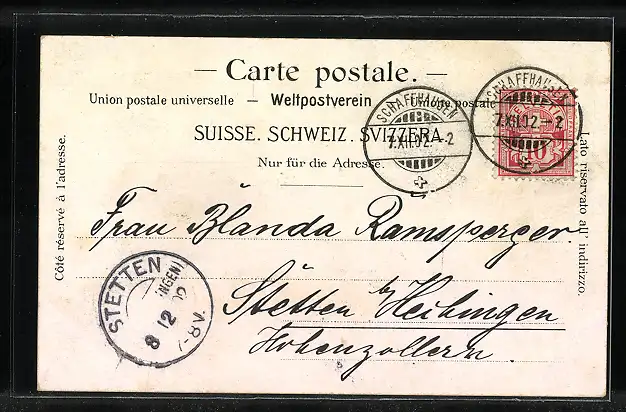 — Carte postale. —
Union postale universelle — Weltpostverein — Unione postale
SUISSE. SCHWEIZ. SVIZZERA.
Nur für die Adresse.
Côté réservé à l'adresse.
Lato riservato all' indirizzo.
SCHAFFHAUSEN
7.XII.02.–2
SCHAFFHAUSEN
7.XII.02.–2
10
Frau Blanda Ramsperger.
Stetten b/ Hechingen
Hohenzollern.
STETTEN
8 12 02
7-8V.